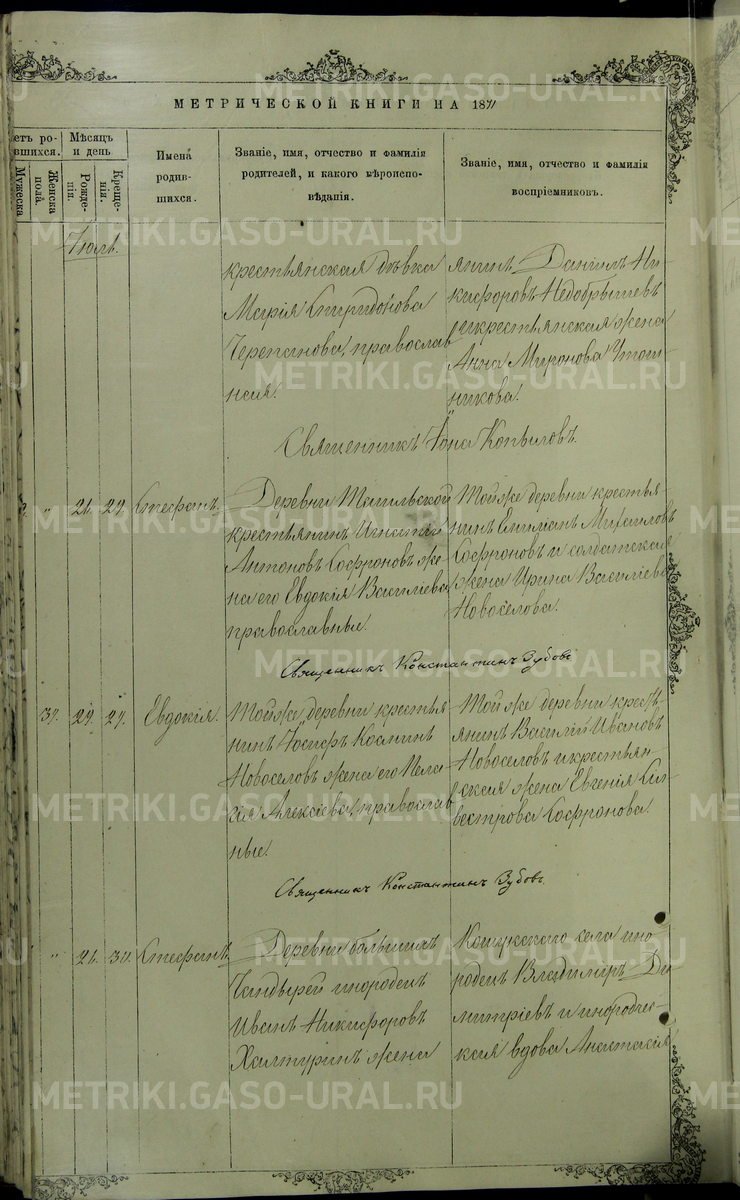 МЕТРИЧЕСКОЙ КНИГИ НА 1871
етъ ро-
вшихся.
Мужеска
Женска
пола.
Мѣсяцъ
и день
Рожде-
нія.
Креще-
нія.
Имена
родив-
шихся.
Званіе, имя, отчество и фамилія
родителей, и какого вѣроиспо-
вѣданія.
Званіе, имя, отчество и фамилія
воспріемниковъ.
Іюль.
крестьянская дѣвка
Марія Спиридонова
Черепанова, православ
ная.
янинъ Данилъ Ни-
кифоровъ Недобрышевъ
и крестьянская жена
Анна Миронова
никова.
Священникъ Іона Копыловъ.
" 21. 29. Стефанъ.
Деревни Тагильской
крестьянинъ Игнатій
Антоновъ Софроновъ же-
на его Евдокія Васильева
православные.
Тойже деревни крестья-
нинъ Емиліанъ Михаиловъ
Софроновъ и солдатская
жена Ирина Васильева
Новоселова.
Священникъ Константинъ Зубовъ
34. 29. 29. Евдокія.
Тойже деревни крестья
нинъ Іосифъ Косминъ
Новоселовъ жена его Пела-
гія Алексіева, православ
ные.
Той же деревни кресть-
янинъ Василій Ивановъ
Новоселовъ и крестьян-
ская жена Евгенія Сил-
вестрова Софронова.
Священникъ Константинъ Зубовъ.
" 21. 31. Стефанъ.
Деревни большихъ
инородецъ
Иванъ Никифоровъ
Халтуринъ жена
Кошукскаго села ино-
родецъ Владиміръ Ди
митріевъ и инородче-
ская вдова Анастасія
METRIKI.GASO-URAL.RU